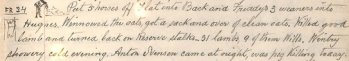 FR 24 Put 3 horses of Flat into Back and Freddy's 3 weaners into
Hughes. Winnowed the oats, got a sack and over of clean oats. Killed good
lamb and turned back on Reserve stalks 31 lambs & 9 of them Kills. Wintry
showery cold evening. Anton Jensen came at night, was pig killing today.